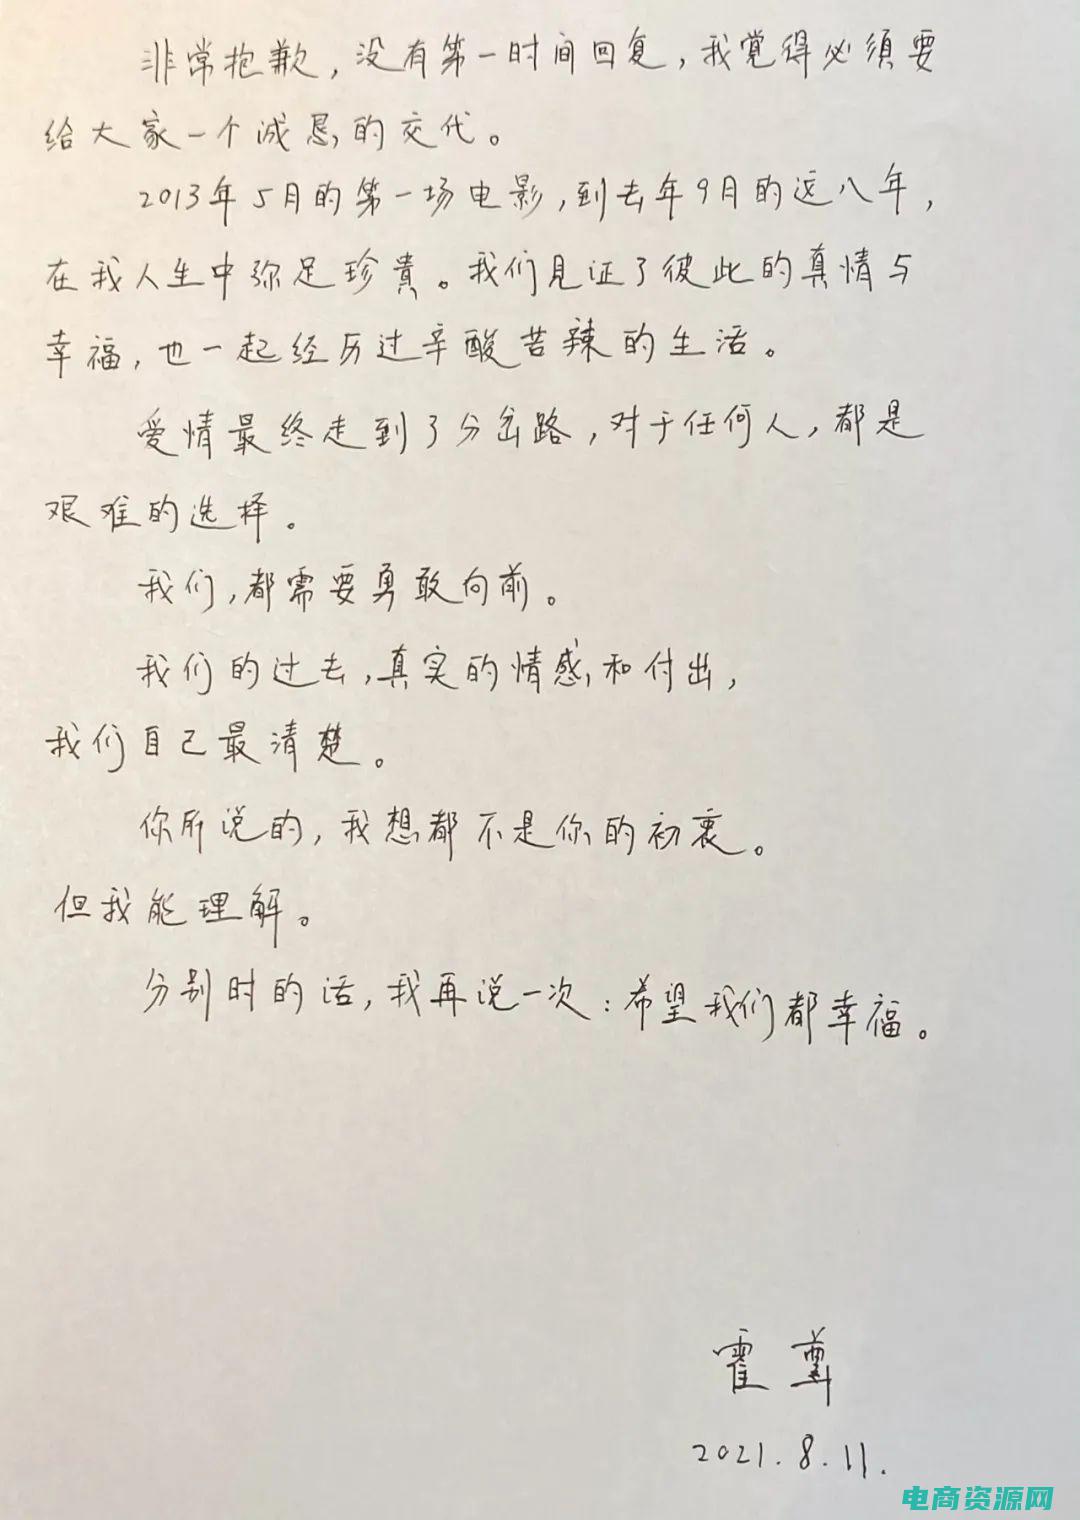 非常抱歉，没有第一时间回复，我觉得必须要
给大家一个诚恳的交代。
2013年5月的第一场电影，到去年9月的这八年，
在我人生中弥足珍贵。我们见证了彼此的真情与
幸福，也一起经历过辛酸苦辣的生活。
爱情最终走到了分岔路，对于任何人，都是
艰难的选择。
我们，都需要勇敢向前。
我们的过去，真实的情感和付出，
我们自己最清楚。
你所说的，我想都不是你的初衷。
但我能理解。
分别时的话，我再说一次：希望我们都幸福。
霍尊
2021.8.11.
电商资源网